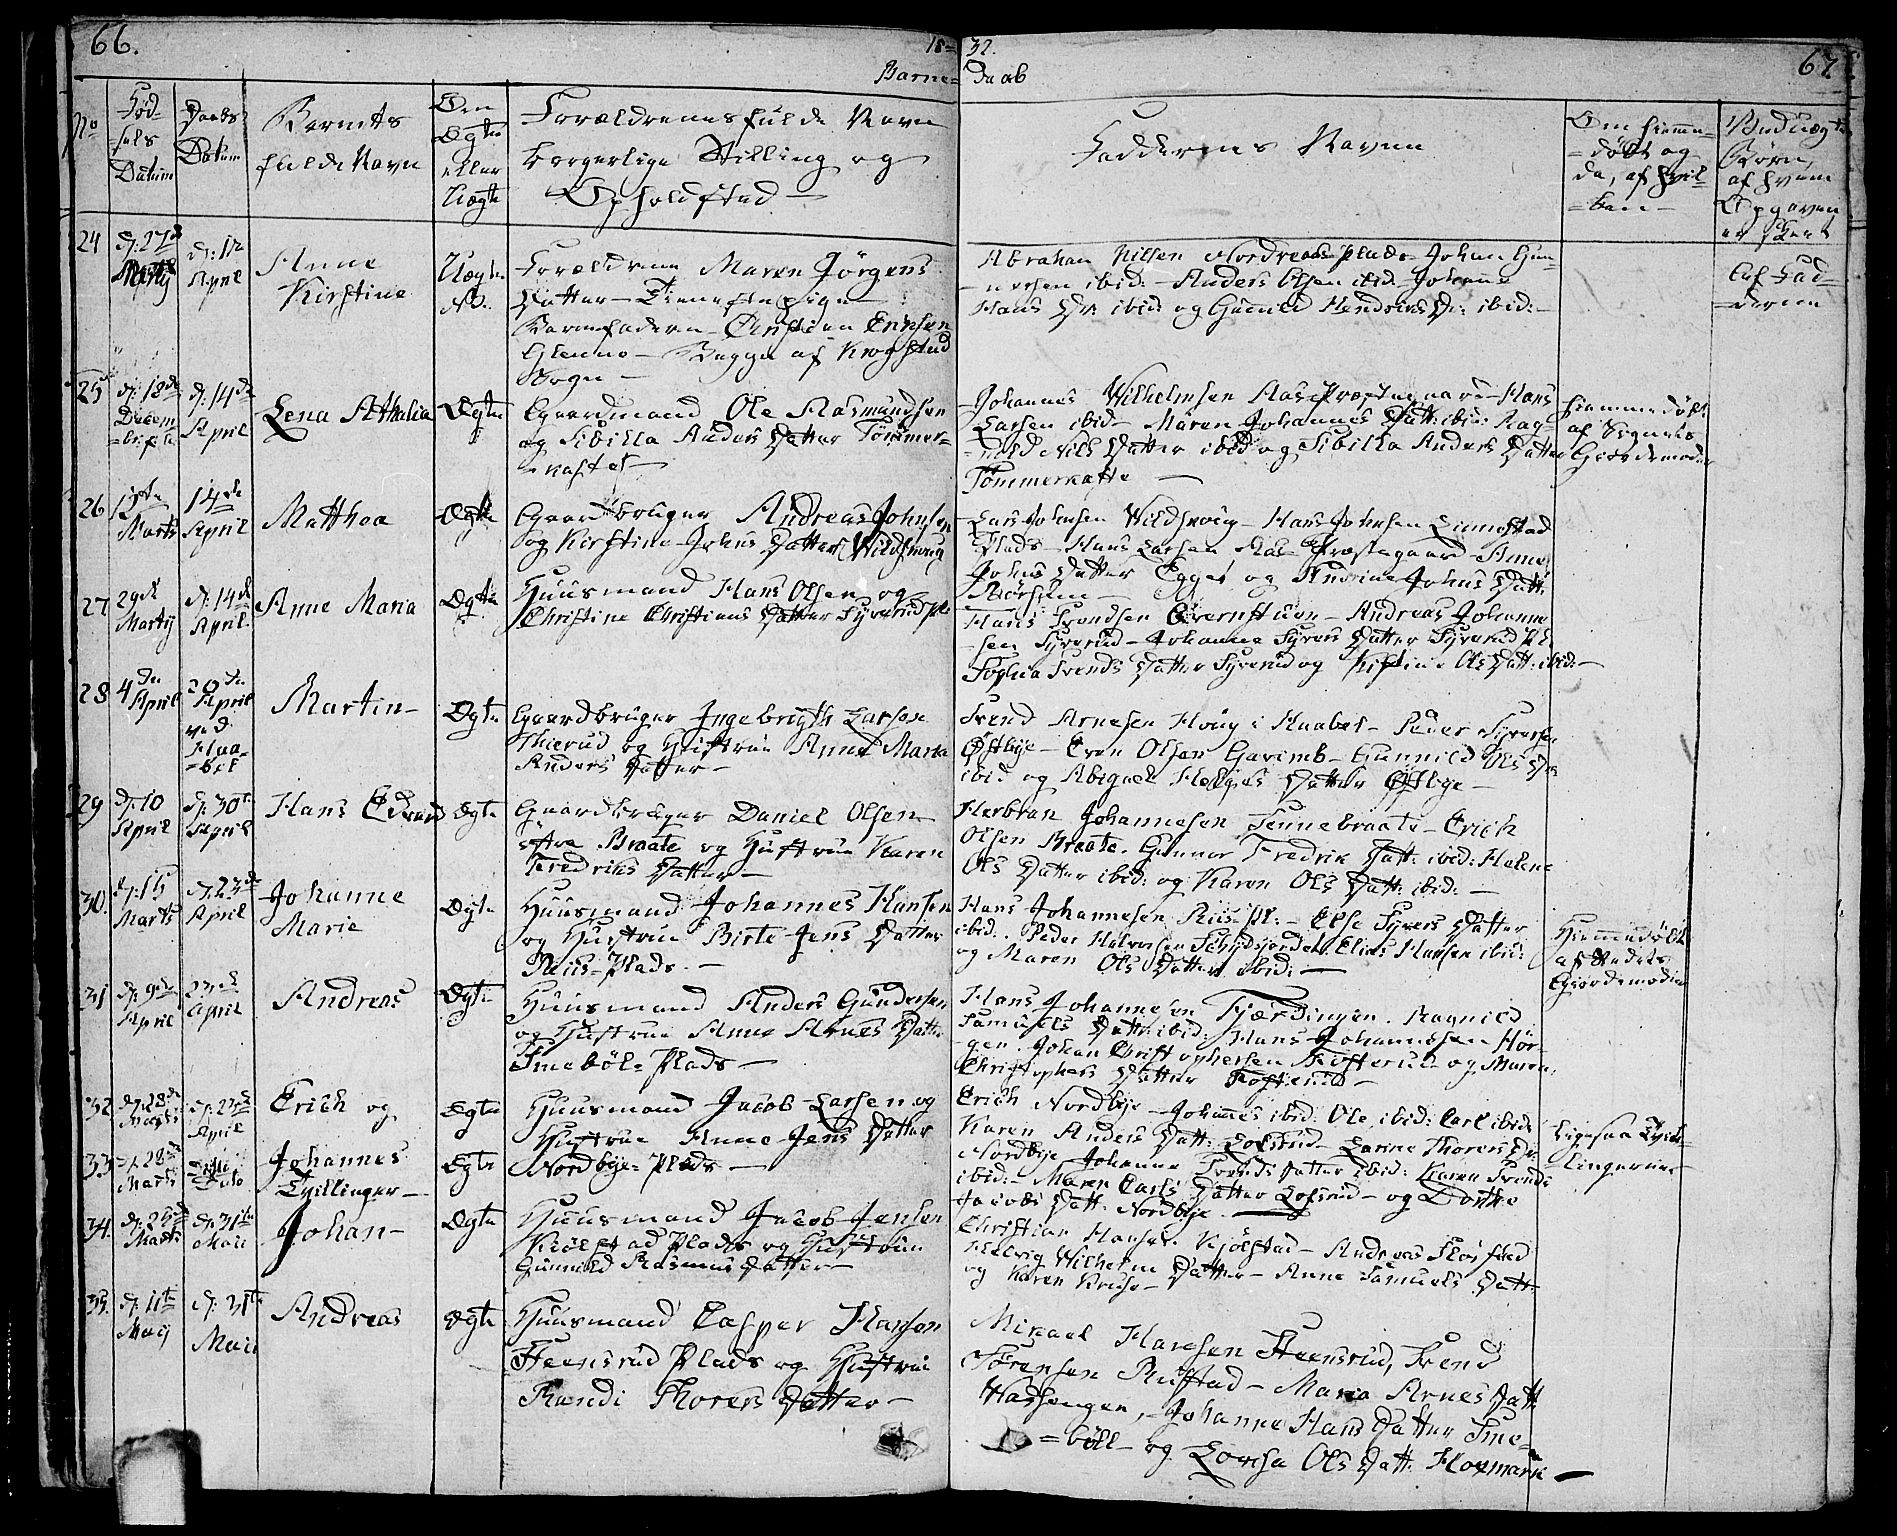 66.
18=
32.
67
Barne=
Daab
No
Fød-
sels
Datum
Daabs
Datum
Barnets
fulde Navn
Om
Ægte
eller
Uægte
Forældrenes fulde Navn
borgerlige Stilling og
Opholdsted
Faddernes Navne
Om hiemme-
=døbt og
da, af hvil-
=ken
Ved uægte
Børn,
af hvem
Opgaven
er skeet
24
d: 27de
d: 12
April
Anne
Kirstine
Uægte
Forældrene Maren Jørgens
Datter - Tieneste pige
Barnefaderen - Christian Erichsen
Glenne - Begge af Krogstad
Sogn
Abraham Nilsen Nordreaas Plads - Johan Gun-
-nersen ibid: - Anders Olsen ibid: Johanne
Hans Dr: ibid: og Gunild Hendriks Dr: ibid:
Af Fad-
derne
25
d: 18de
Decem-
d: 14de
April
Lena Athalia
Ægte
Gaardmand Ole Aasmundsen
og Sibilla Anders Datter Tømmer-
=kaste
Johannes Wilhelmsen Aas Præstegaard - Hans
Larsen ibid - Maren Johannes Datt: ibid: Rag-
=nild Nils Datter ibid og Sibilla Anders Datter
Tømmerkaste
Hiemmedøbt
af
Giordemoder
26
Marts
14de
April
Matthea
Ægte
Gaardbruger Andreas Johnsen
og Kirstine Johns Datter Wildhoug
Lars Johnsen Wildhoug - Hans Johnsen
Plads - Hans Larsen Aas Præstegaard - Anne
Johns Datter Egget og Andrine Johns Datt:
27
29de
Martij
d: 14de
April
Anne Maria
Ægte
Huusmand Hans Olsen og
Christine Christians Datter Syverud Pl:
Hans Svendsen - Andreas Johanne-
-sen Syverud - Johanne Syvers Datter Syverud Pl:
Sophia Svends Datter Syverud og Kistine Ols Datt: ibid:
28
4de
April
20de
April
ved
Martin
Ægte
Gaardbruger Ingebrigth Larsen
Thierud og Hustrue Anne Maria
Anders Datter
Svend Arnesen Houg i - Peder Syversen
Østbye - Even Olsen - Gunnild Ols Dr:
ibid og Abigael Helges Datter Østbye
29
d: 10
April
d: 30te
April
Hans Edvard
Ægte
Gaardbruger Daniel Olsen
Braate og Hustrue Karen
Fredriks Datter
Herbran Johannesen Tennebraate - Erich
Olsen Braate. Gunnor Fredrik Datt: ibid: Helene
Ols Datter ibid: og Karen Ols Datt: ibid:
30.
d: 15
Marts
d: 23de
April
Johanne
Marie
Ægte
Huusmand Johannes Hansen
og Hustrue Birte Jens Datter
Ruus-Plads
Hans Johannesen Ruus Pl: - Else Syvers Datter
ibid. Peder Halvorsen Elias Hansen ibid:
og Maren Ols Datter ibid:
Hiemmedøbt
af
Giordemoder
31
d: 9de
April
23de
April
Andreas
Ægte
Huusmand Anders Gundersen
og Hustrue Anne Arnes Datter
Smebøl-Plads
Hans Johannesen Fjærdingen. Ragnild
Samuels Datt: ibid: Hans Johannesen Hør-
gen. Johan Christophersen Tofterud og Maren
Christophers Datter Tofterud
32
d: 28de
Marts
d: 23de
April
Erich og
Ægte
Huusmand Jacob Larsen og
Hustrue Anne Jens Datter
Nordbye-Plads
33
d: 28de
Marts
Dito
Johannes
Tvillinger
Ægte
Erich Nordbye - Johannes ibid: Ole ibid: Carl ibid:
Karen Anders Datt: Lofsrud - Larine Thorers Dr:
Nordbye Johanne Svends Datter ibid: Karen Svends
ibid: - Maren Carls Datter Lofsrud - og Dorthe
Jacobs Datt: Nordbye
Ligesaa Tvil-
lingerne
34.
Marts
d: 31te
Maii
Johan
Ægte
Huusmand Jacob Jensen
Kiølstad Plads og Hustrue
Gunnild Rasmus Datter
Christian Hansen Kjølstad - Andreas
Helvig Wilhelm Datter - Anne Samuels Datt:
og Karen
35.
d: 11te
Maij
d: 31te
Maii
Andreas
Ægte
Huusmand Casper Hansen
Steensrud Plads og Hustrue
Randi Thorers Datter
Mikael Hansen Steensrud, Svend
Sørensen Rustad - Maria Arnes Datt
Wassengen, Johanne Hans Datter Sme-
=bøll - og Lovisa Ols Datt: